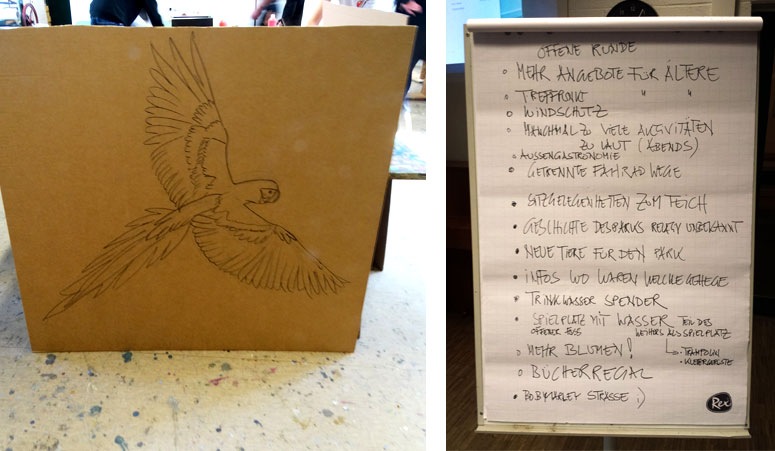 OFFENE RUNDE
MEHR ANGEBOTE FÜR ÄLTERE
TREFFPUNKT " "
WINDSCHUTZ
MANCHMAL ZU VIELE AKTIVITÄTEN
ZU LAUT (ABENDS)
AUSSENGASTRONOMIE
GETRENNTE FAHRRADWEGE
SITZGELEGENHEITEN ZUM TEICH
GESCHICHTE DES PARKS RELATIV UNBEKANNT
NEUE TIERE FÜR DEN PARK
INFOS WO WAREN WELCHE GEHEGE
TRINKWASSER SPENDER
SPIELPLATZ MIT WASSER TEIL DES
OFFENER WEIHERS ALS SPIELPLATZ
MEHR BLUMEN! TRAMPOLIN
BÜCHERREGAL
STRASSE :)
Rex